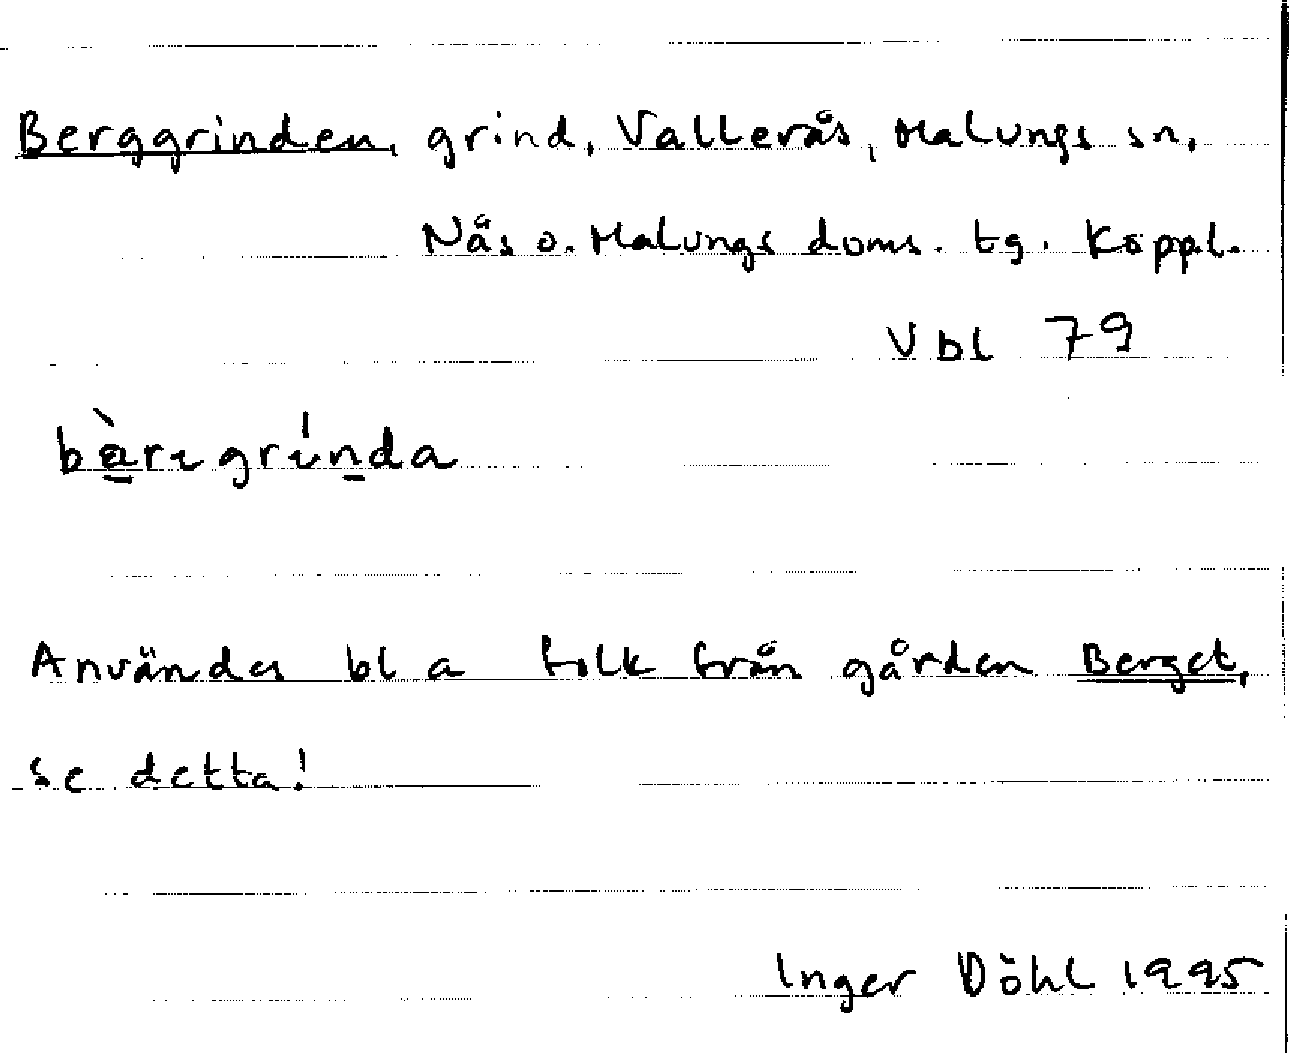 Berggrinden, grind, Vallerås, Malungs sn,
Nås o. Malungs doms. tg. Koppl.
Vbl 79
bàrıgrı́nda
Användes bl a folk från gården Berget,
se detta!
Inger Döhl 1995